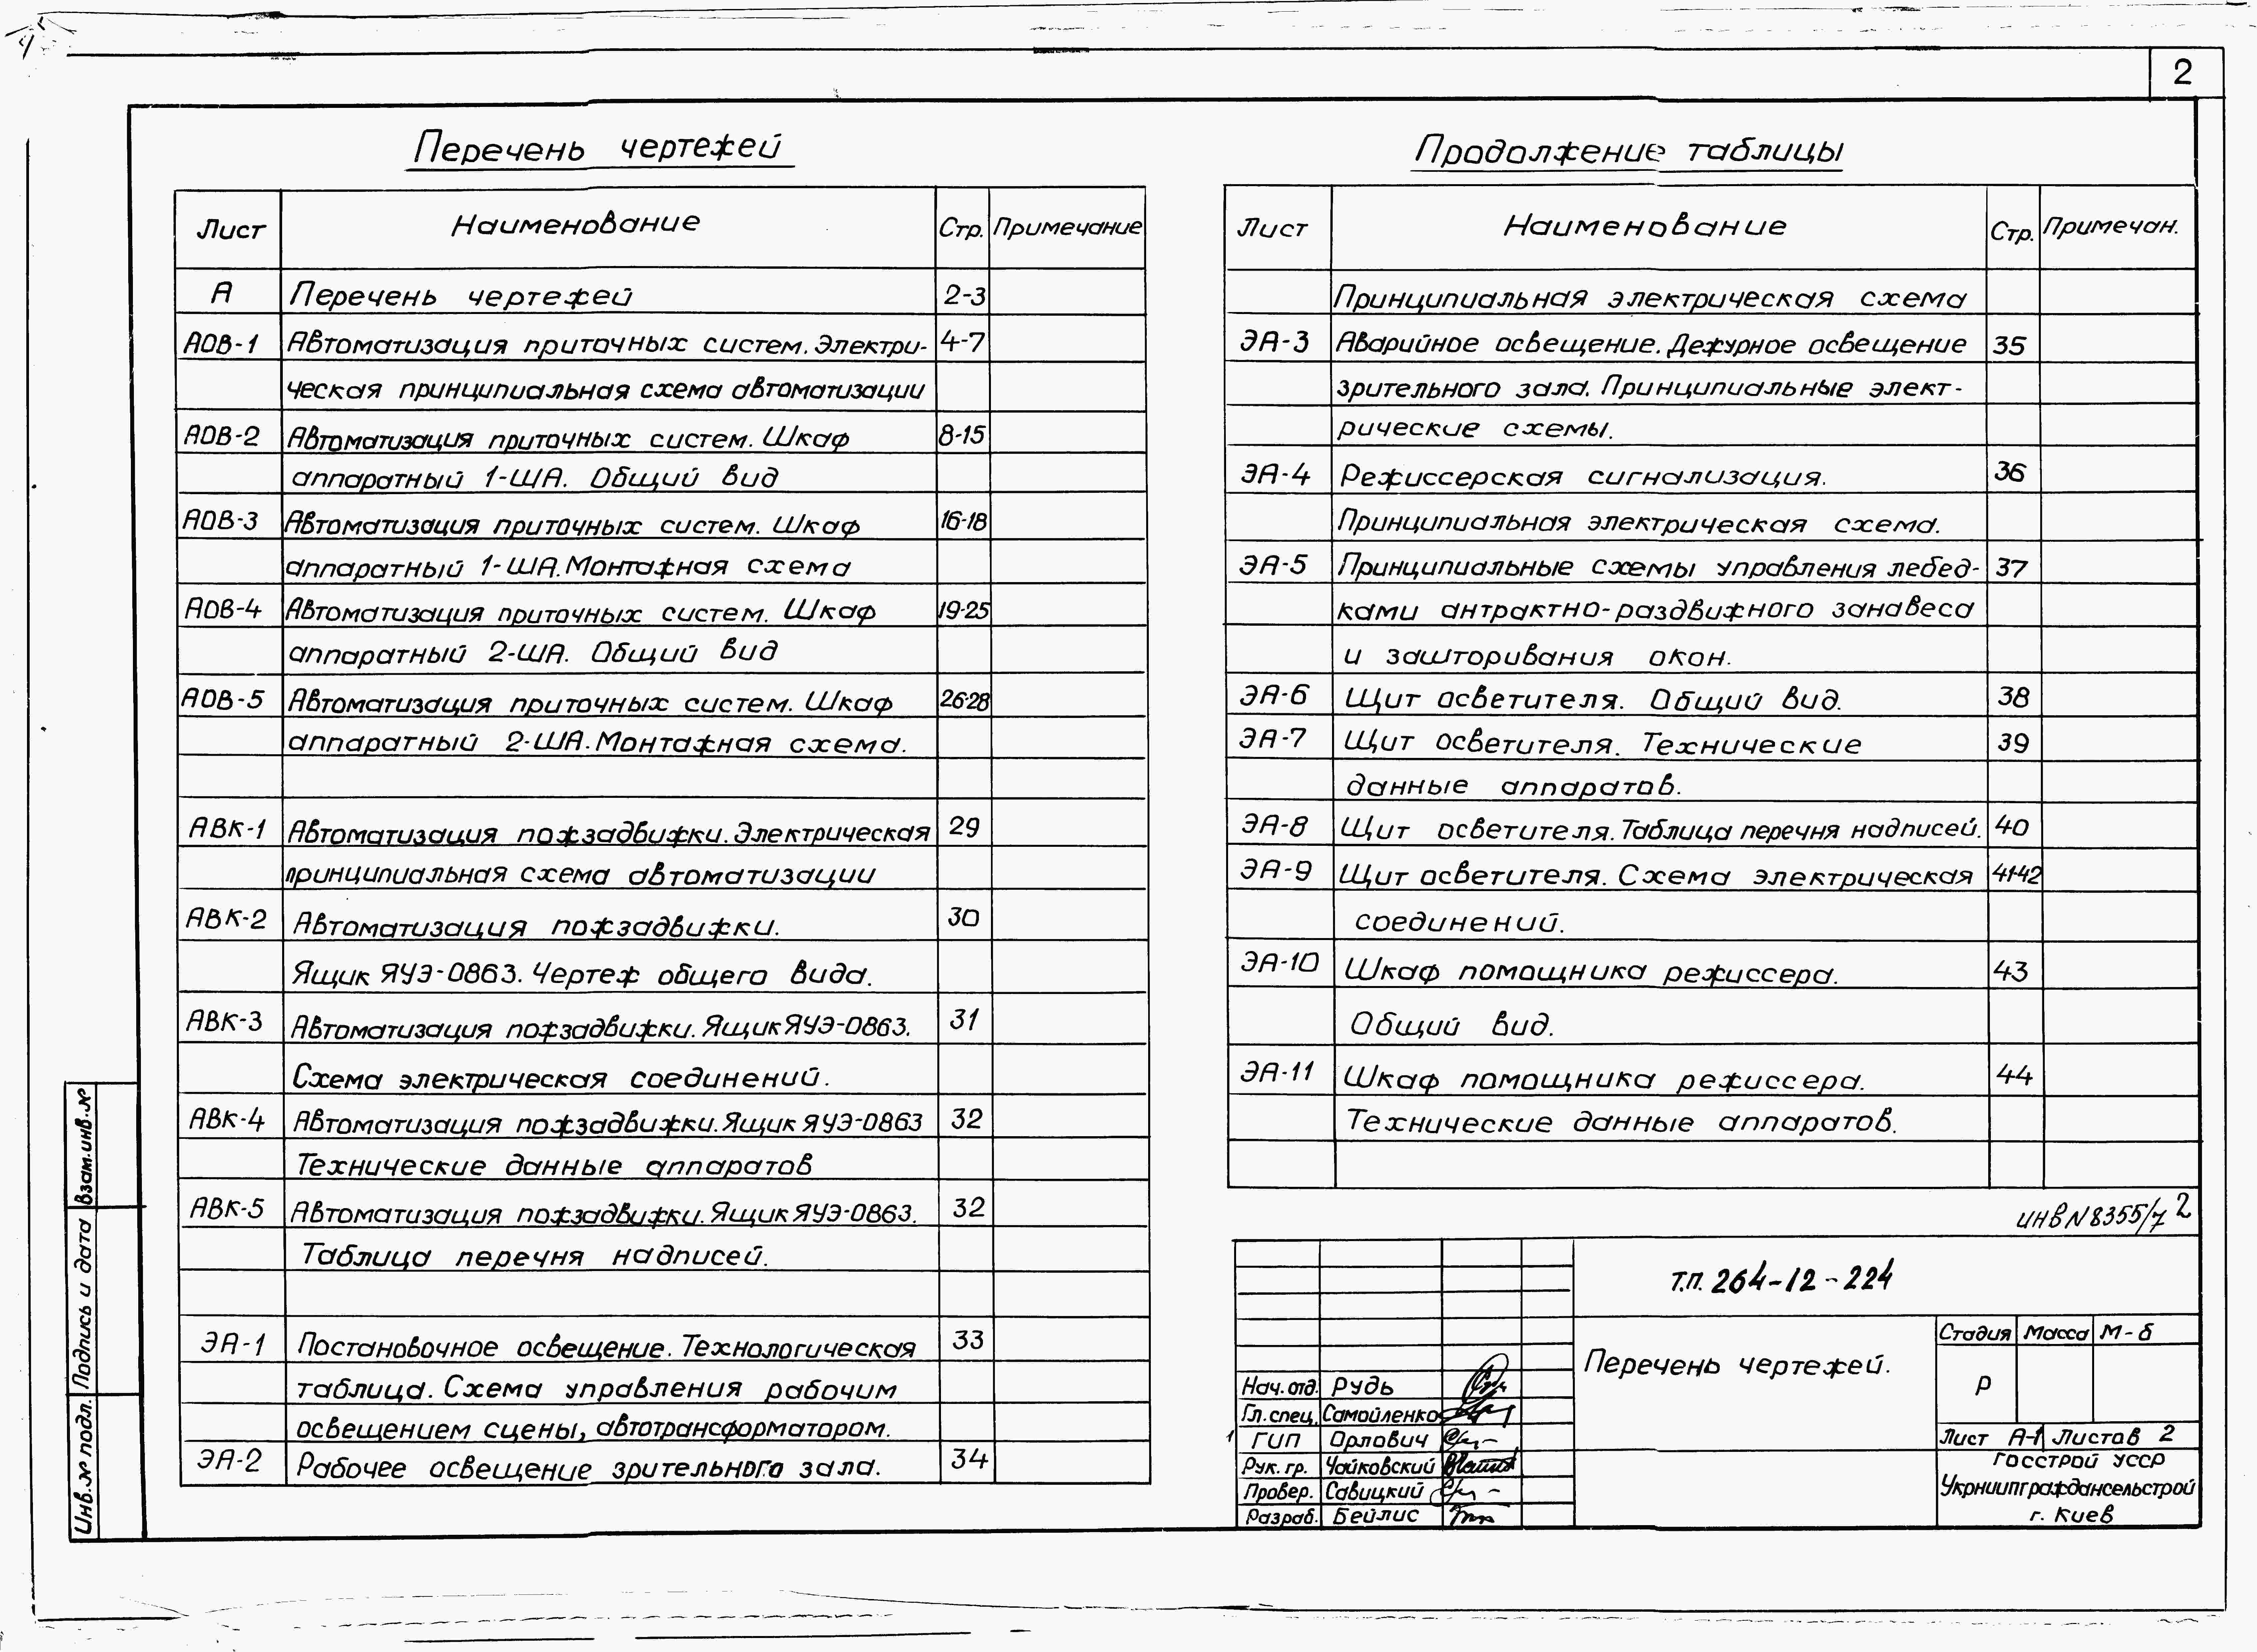 2
Перечень чертежей
Лист Наименование Стр. Примечание
А Перечень чертежей 2-3
АОВ-1 Автоматизация приточных систем. Электри- 4-7
ческая принципиальная схема автоматизации
АОВ-2 Автоматизация приточных систем. Шкаф 8-15
аппаратный 1-ЩА. Общий вид
АОВ-3 Автоматизация приточных систем. Шкаф 16-18
аппаратный 1-ША. Монтажная схема
АОВ-4 Автоматизация приточных систем. Шкаф 19-25
аппаратный 2-ША. Общий вид
АОВ-5 Автоматизация приточных систем. Шкаф 26-28
аппаратный 2-ША. Монтажная схема.
АВК-1 Автоматизация пожзадвижки. Электрическая 29
принципиальная схема автоматизации
АВК-2 Автоматизация пожзадвижки. 30
Ящик ЯУЭ-0863. Чертеж общего вида.
АВК-3 Автоматизация пожзадвижки. Ящик ЯУЭ-0863. 31
Схема электрическая соединений.
АВК-4 Автоматизация пожзадвижки. Ящик ЯУЭ-0863 32
Технические данные аппаратов
АВК-5 Автоматизация пожзадвижки. Ящик ЯУЭ-0863. 32
Таблица перечня надписей.
ЭА-1 Постановочное освещение. Технологическая 33
таблица. Схема управления рабочим
освещением сцены, автотрансформатором.
ЭА-2 Рабочее освещение зрительного зала. 34
Продолжение таблицы
Лист Наименование Стр. Примечан.
Принципиальная электрическая схема
ЭА-3 Аварийное освещение. Дежурное освещение 35
зрительного зала. Принципиальные элект-
рические схемы.
ЭА-4 Режиссерская сигнализация. 36
Принципиальная электрическая схема.
ЭА-5 Принципиальные схемы управления лебед- 37
ками антрактно-раздвижного занавеса
и зашторивания окон.
ЭА-6 Щит осветителя. Общий вид. 38
ЭА-7 Щит осветителя. Технические 39
данные аппаратов.
ЭА-8 Щит осветителя. Таблица перечня надписей. 40
ЭА-9 Щит осветителя. Схема электрическая 41-42
соединений.
ЭА-10 Шкаф помощника режиссера. 43
Общий вид.
ЭА-11 Шкаф помощника режиссера. 44
Технические данные аппаратов.
ИНВ N 8355/7 2
Т.П. 264-12-224
Перечень чертежей.
Стадия Масса М-б
Р
Лист А-1 Листов 2
Госстрой УССР
Укрниипграждансельстрой
г. Киев
Нач. отд. Рудь
Гл. спец. Самойленко
ГИП Орлович
Рук. гр. Чайковский
Провер. Савицкий
Разраб. Бейлис
Взам. инв. №
Подпись и дата
Инв. № подл.